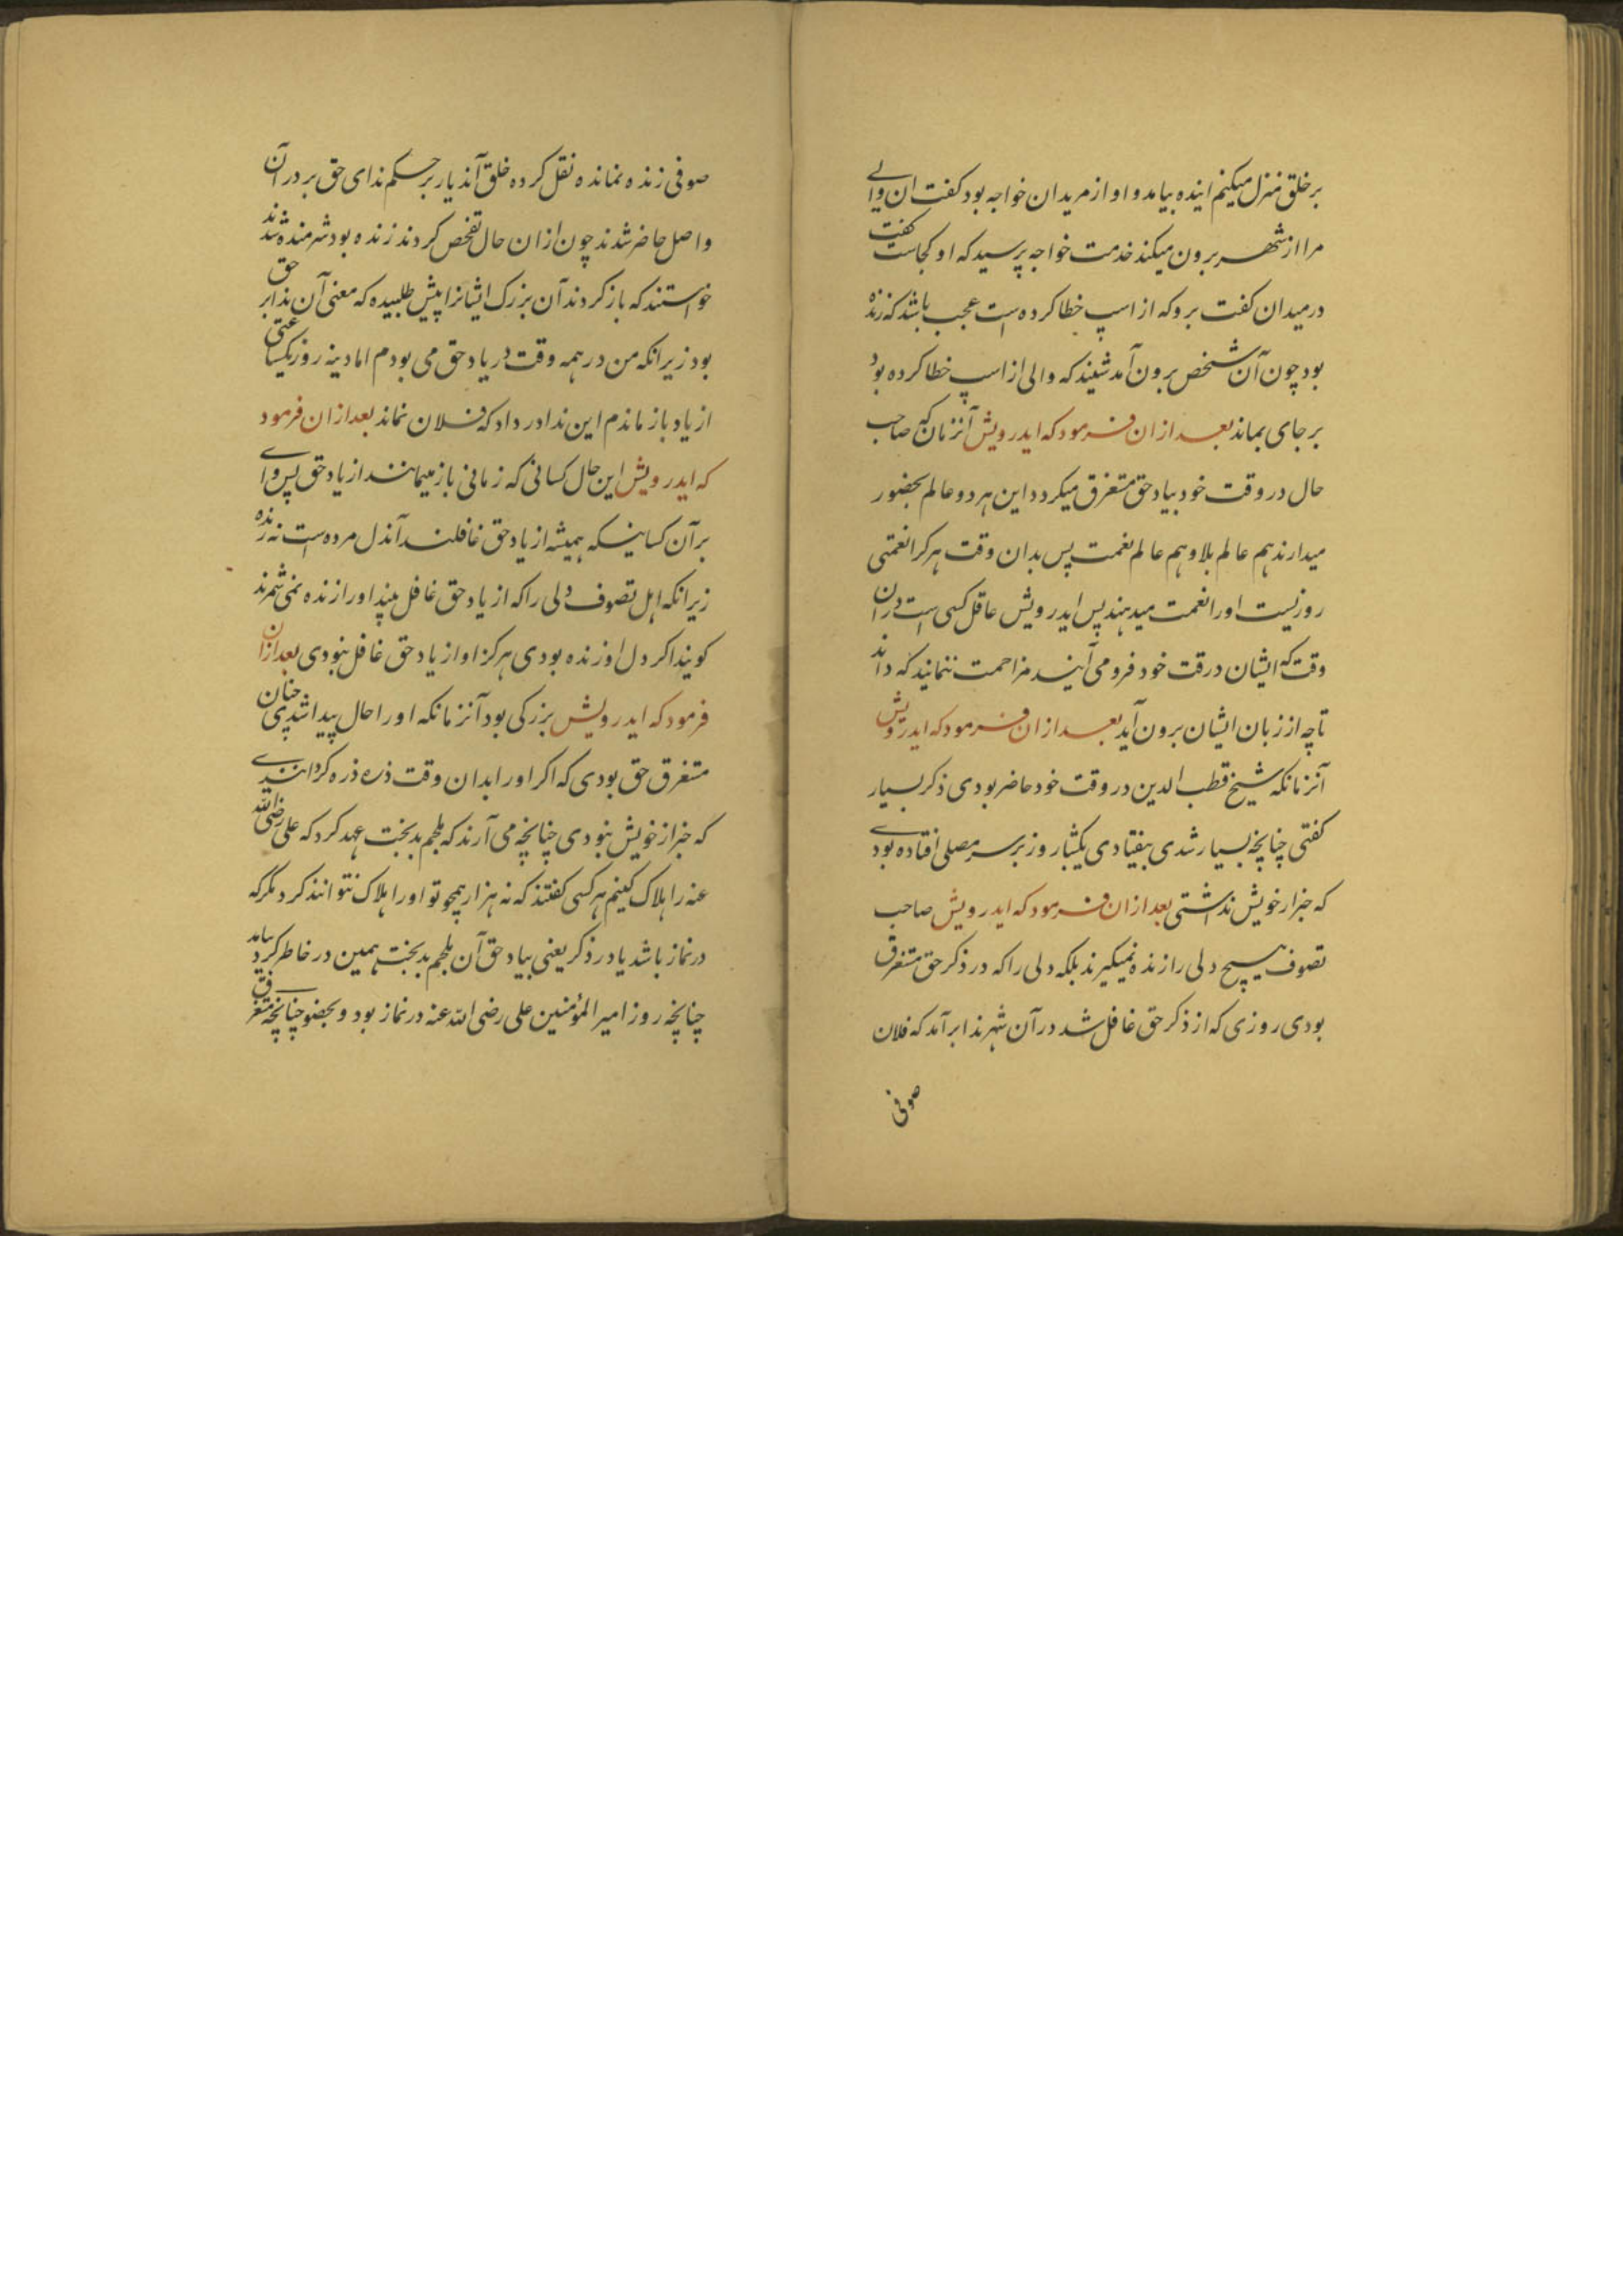 بر خلق منزل میکنم اینده بیامد و او از مریدان خواجه بود کفت ان والے
مرا از شهر برون میکند خدمت خواجه پرسید که او کجاست کفت
در میدان کفت برو که از اسپ خطا کرده است عجب باشد که زنده
بود چون آن شخص برون آمد شنید که والی از اسپ خطا کرده بود
بر جای بماند بعد از ان فرمود که ایدرویش آنزمان که صاحب
حال در وقت خود بیاد حق مستغرق میکردد این هر دو عالم بحضور
میدارند هم عالم بلا و هم عالم نعمت پس بدان وقت هر کرا نعمتی
روزیست اورا نعمت میدهند پس ایدرویش عاقل کسی است در ان
وقت که ایشان در قت خود فرو می آیند مزاحمت ننمایند که داند
تا چه از زبان ایشان برون آید بعد از ان فرمود که ایدرویش
آنزمانکه شیخ قطب الدین در وقت خود حاضر بودی ذکر بسیار
کفتی چنانچه بسیار شدی بیفتادی یکشبار روز بر سر مصلی افتاده بودے
که خبر از خویش نداشتی بعد از ان فرمود که ایدرویش صاحب
تصوف هیچ دلی را زنده نمیکیرند بلکه دلی را که در ذکر حق مستغرق
بودی روزی که از ذکر حق غافل شد در آن شهر ندا برآمد که فلان
صوفی
صوفی زنده نمانده نقل کرده خلق آندیار بر حکم ندای حق بر در آن
واصل حاضر شدند چون ازان حال تفحص کردند زنده بود شرمنده شدند
خواستند که باز کردند آن بزرک ایشانرا پیش طلبیده که معنی آن ندا بر حق
بود زیرانکه من در همه وقت در یاد حق می بودم اما دینه روز یکساعتی
از یاد باز ماندم این ندا در داد که فلان نماند بعد از ان فرمود
که ایدرویش این حال کسانی که زمانی باز میمانند از یاد حق پس واے
بر آن کسانیکه همیشه از یاد حق غافلند آندل مرده است نه زنده
زیرانکه اهل تصوف دلی را که از یاد حق غافل بیند او را زنده نمی شمرند
کویند اکر دل او زنده بودی هرکز او از یاد حق غافل نبودی بعد ازان
فرمود که ایدرویش بزرکی بود آنزمانکه اورا حال پیدا شدی چنان
مستغرق حق بودی که اکر اورا بدان وقت ذره ذره کردانندے
که خبر از خویش نبودی چنانچه می آرند که ملجم بدبخت عهد کرد که علی رضی الله
عنه را هلاک کنیم هر کسی کفتند که نه هزار همچو تو اورا هلاک نتوانند کرد مکر که
در نماز باشد یا در ذکر یعنی بیاد حق آن ملجم بدبخت همین در خاطر کرد بیامد
چنانچه روز امیر المؤمنین علی رضی الله عنه در نماز بود و بحضور چنانچه مستغرق